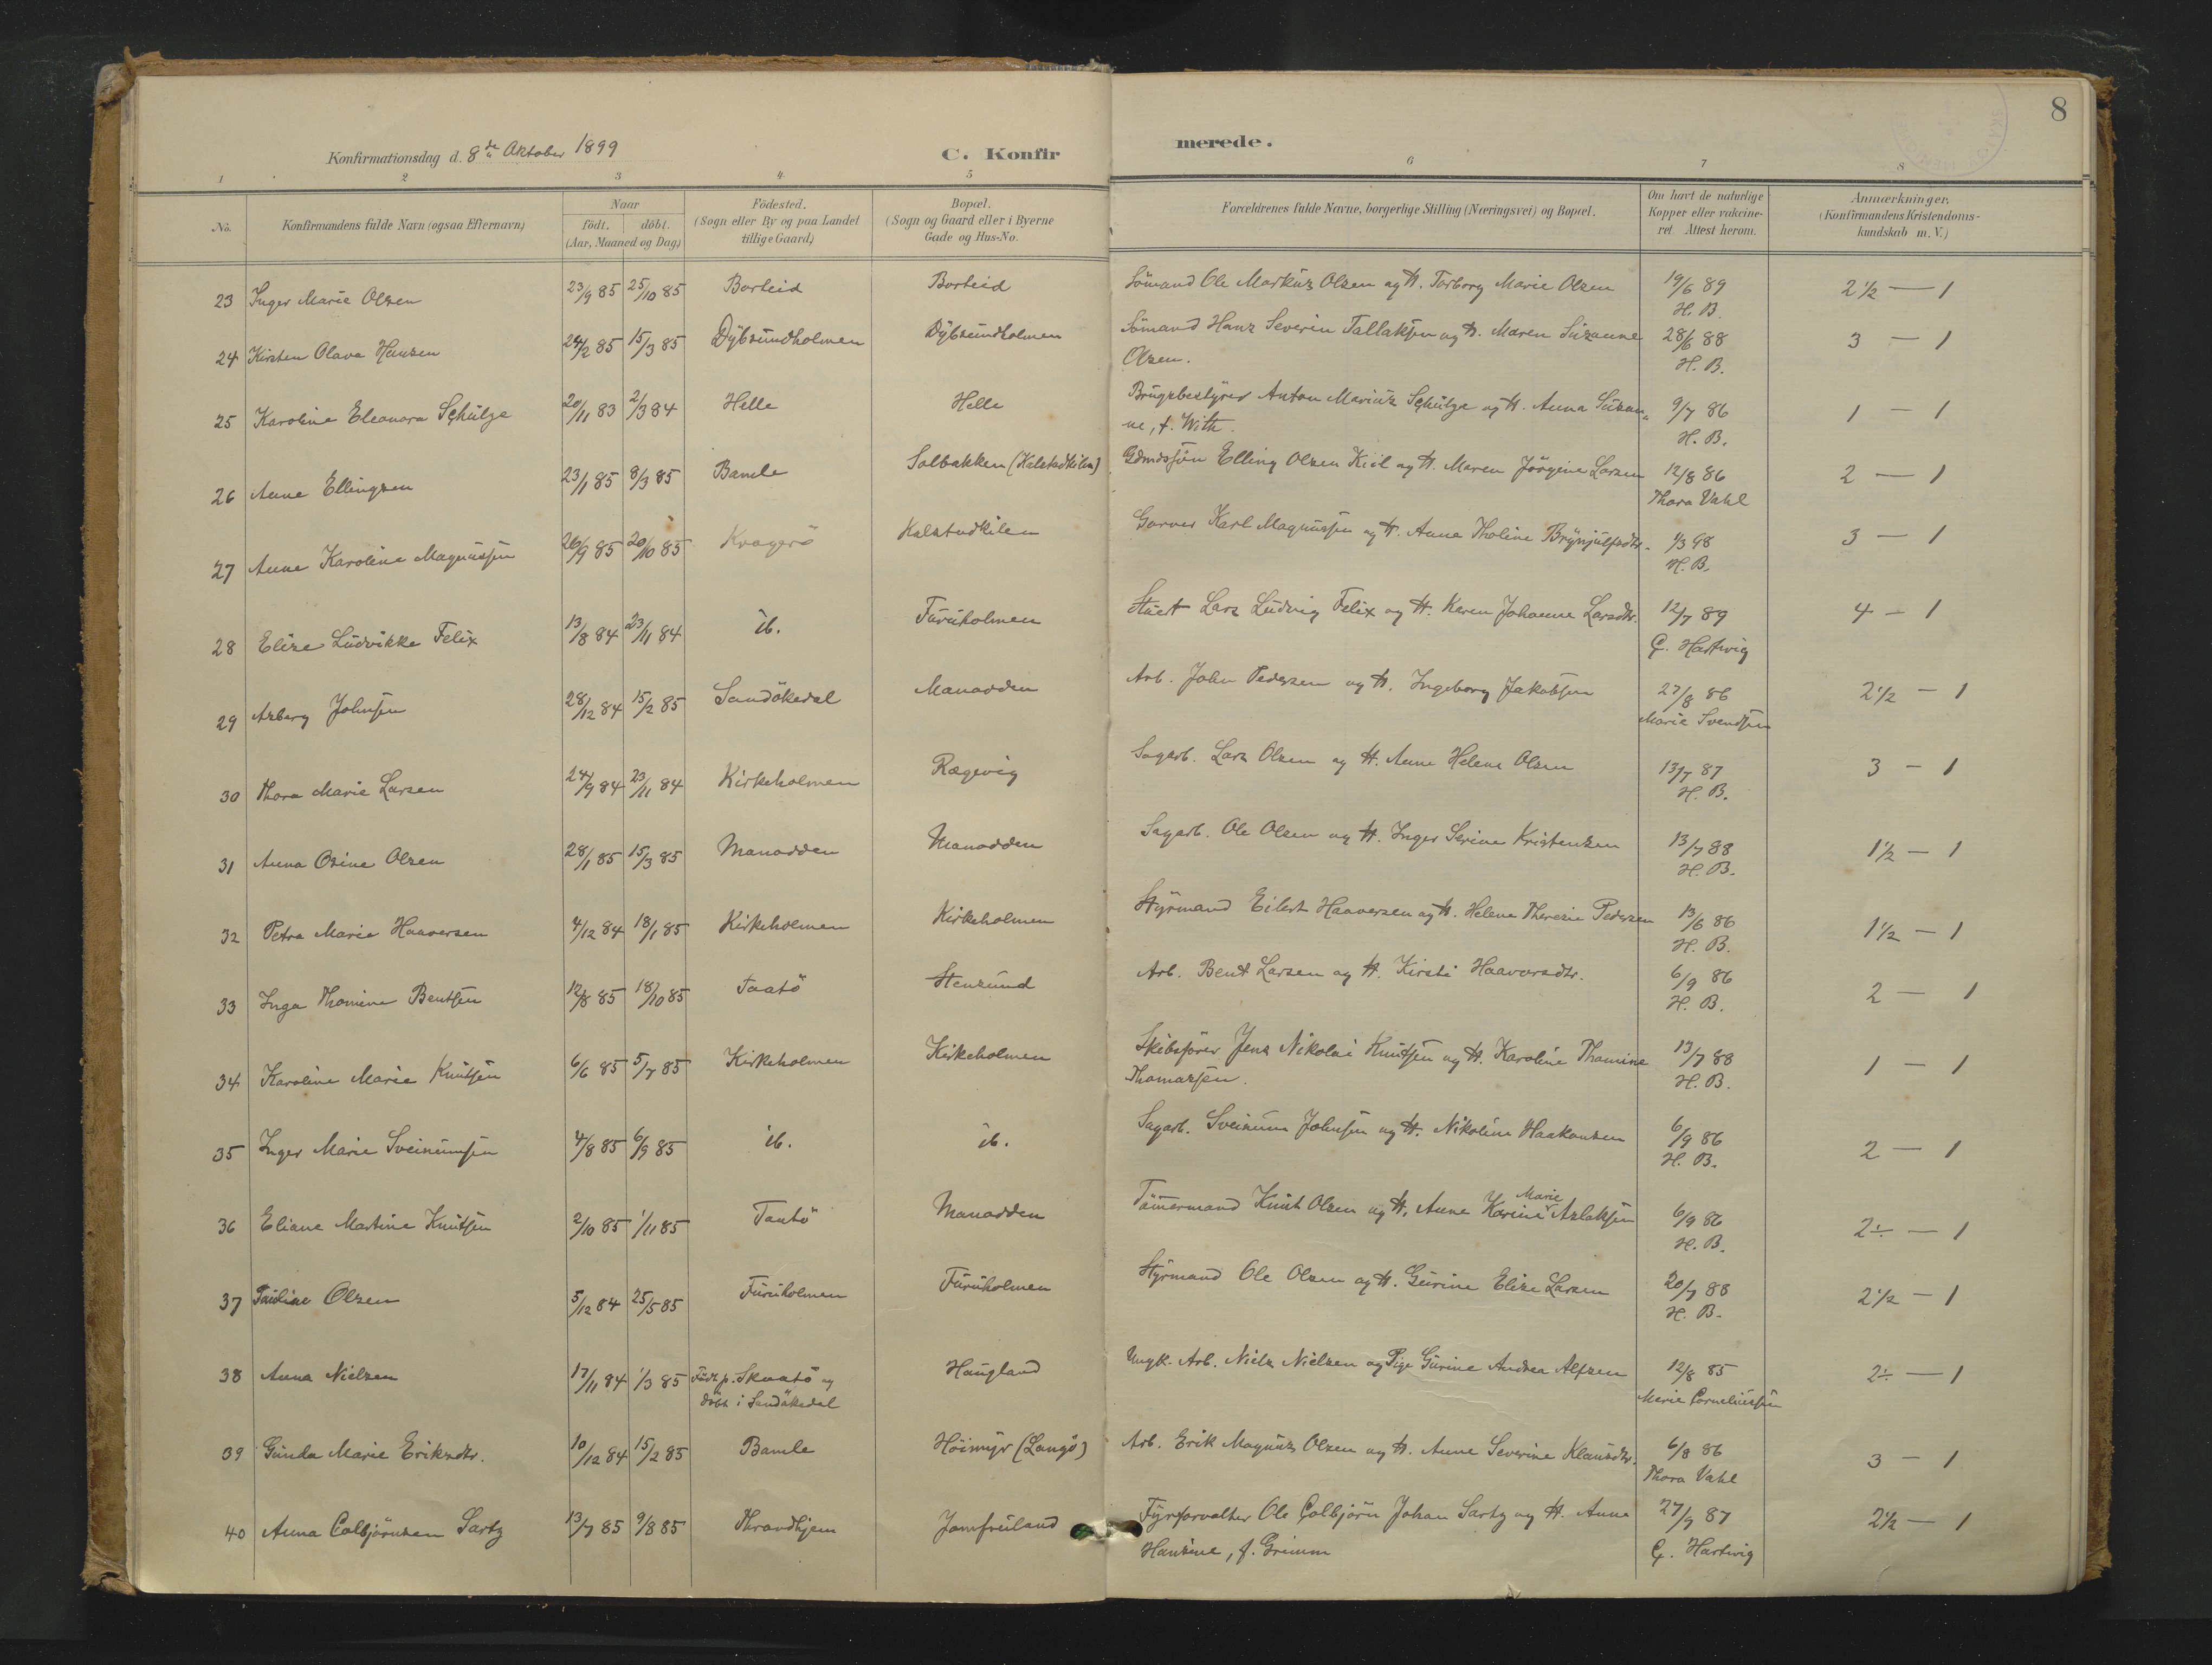 8
Konfirmationsdag d. 8de Oktober 1899 C. Konfirmerede.
1 2 3 4 5 6 7 8
No. Konfirmandens fulde Navn (ogsaa Efternavn) Naar født. døbt. (Aar, Maaned og Dag) Fødested. (Sogn eller By og paa Landet tillige Gaard) Bopæl. (Sogn og Gaard eller i Byerne Gade og Hus-No. Forældrenes fulde Navne, borgerlige Stilling (Næringsvei) og Bopæl. Om havt de naturlige Kopper eller vakcineret Attest herom. Anmærkninger, (Konfirmandens Kristendomskundskab m. V.)
23 Inger Marie Olsen 23/9 85 25/10 85 Borteid Borteid Sömand Ole Markus Olsen og H. Torborg Marie Olsen 19/6 89 H. B. 2 1/2 — 1
24 Kirsten Olava Hansen 24/2 85 15/3 85 Dybsundholmen Dybsundholmen Sömand Hans Severin Tallaksen og H. Maren Susanne Olsen. 28/6 88 H. B. 3 — 1
25 Karoline Eleonora Schulze 20/11 83 2/3 84 Helle Helle Brugsbestyrer Anton Marius Schulze og H. Anna Susanne, f. With. 9/7 86 H. B. 1 — 1
26 Anne Ellingsen 23/1 85 8/3 85 Bamle Solbakken (Kalstadkilen) Gdmdssön Elling Olsen Kiil og H. Maren Jörgine Larsen 12/8 86 Thora Vahl 2 — 1
27 Anne Karoline Magnussen 26/9 85 20/10 85 Kragerö Kalstadkilen Garver Karl Magnussen og H. Anne Tholine Brynjulfsdtr. 1/3 98 H. B. 3 — 1
28 Elise Ludvikke Felix 13/8 84 23/11 84 ib. Furuholmen Stuert Lars Ludvig Felix og H. Karen Johanne Larsdtr. 12/7 89 C. Hartvig 4 — 1
29 Asborg Johnsen 28/12 84 15/2 85 Sandökedal Manodden Arb. John Pedersen og H. Ingeborg Jakobsen 27/8 86 Marie Svendsen 2 1/2 — 1
30 Thora Marie Larsen 24/9 84 23/11 84 Kirkeholmen Rægevig Sagarb. Lars Olsen og H. Anne Helene Olsen 13/7 87 H. B. 3 — 1
31 Anna Osine Olsen 28/1 85 15/3 85 Manodden Manodden Sagarb. Ole Olsen og H. Inger Serine Kristensen 13/7 88 H. B. 1 1/2 — 1
32 Petra Marie Haaversen 4/12 84 18/1 85 Kirkeholmen Kirkeholmen Styrmand Eilert Haaversen og H. Helene Theresie Pedersen 13/6 86 H. B. 1 1/2 — 1
33 Inga Thomine Bentsen 12/8 85 18/10 85 Taatö Stensund Arb. Bent Larsen og H. Kirsti Haavorsdtr. 6/9 86 H. B. 2 — 1
34 Karoline Marie Knutsen 6/6 85 5/7 85 Kirkeholmen Kirkeholmen Skibsförer Jens Nikolai Knutsen og H. Karoline Thomine Thomassen. 13/7 88 H. B. 1 — 1
35 Inger Marie Sveinumsen 4/8 85 6/9 85 ib. ib. Sagarb. Sveinum Johnsen og H. Nikoline Haakonsen 6/9 86 H. B. 2 — 1
36 Eliane Martine Knutsen 2/10 85 1/11 85 Taatö Manodden Tömermand Knut Olsen og H. Anne Karine Marie Aslaksen 6/9 86 H. B. 2 ÷ — 1
37 Pauline Olsen 5/12 84 25/5 85 Furuholmen Furuholmen Styrmand Ole Olsen og H. Gurine Elise Larsen 20/7 88 H. B. 2 1/2 — 1
38 Anna Nielsen 17/11 84 1/3 85 Födt p. Skaatö og döbt i Sandökedal Haugland Ungk. Arb. Niels Nielsen og Pige Gurine Andrea Alfsen 12/8 85 Marie Corneliussen 2 ÷ — 1
39 Gunda Marie Eriksdtr. 10/12 84 15/2 85 Bamle Höimyr (Langö) Arb. Erik Magnus Olsen og H. Anne Severine Klausdtr. 6/8 86 Thora Vahl 3 — 1
40 Anna Colbjörnsen Sartz 13/7 85 9/8 85 Throndhjem Jomfruland Fyrforvalter Ole Colbjörn Johan Sartz og H. Anne Hansine, f. Grimm 27/9 87 C. Hartvig 2 1/2 — 1